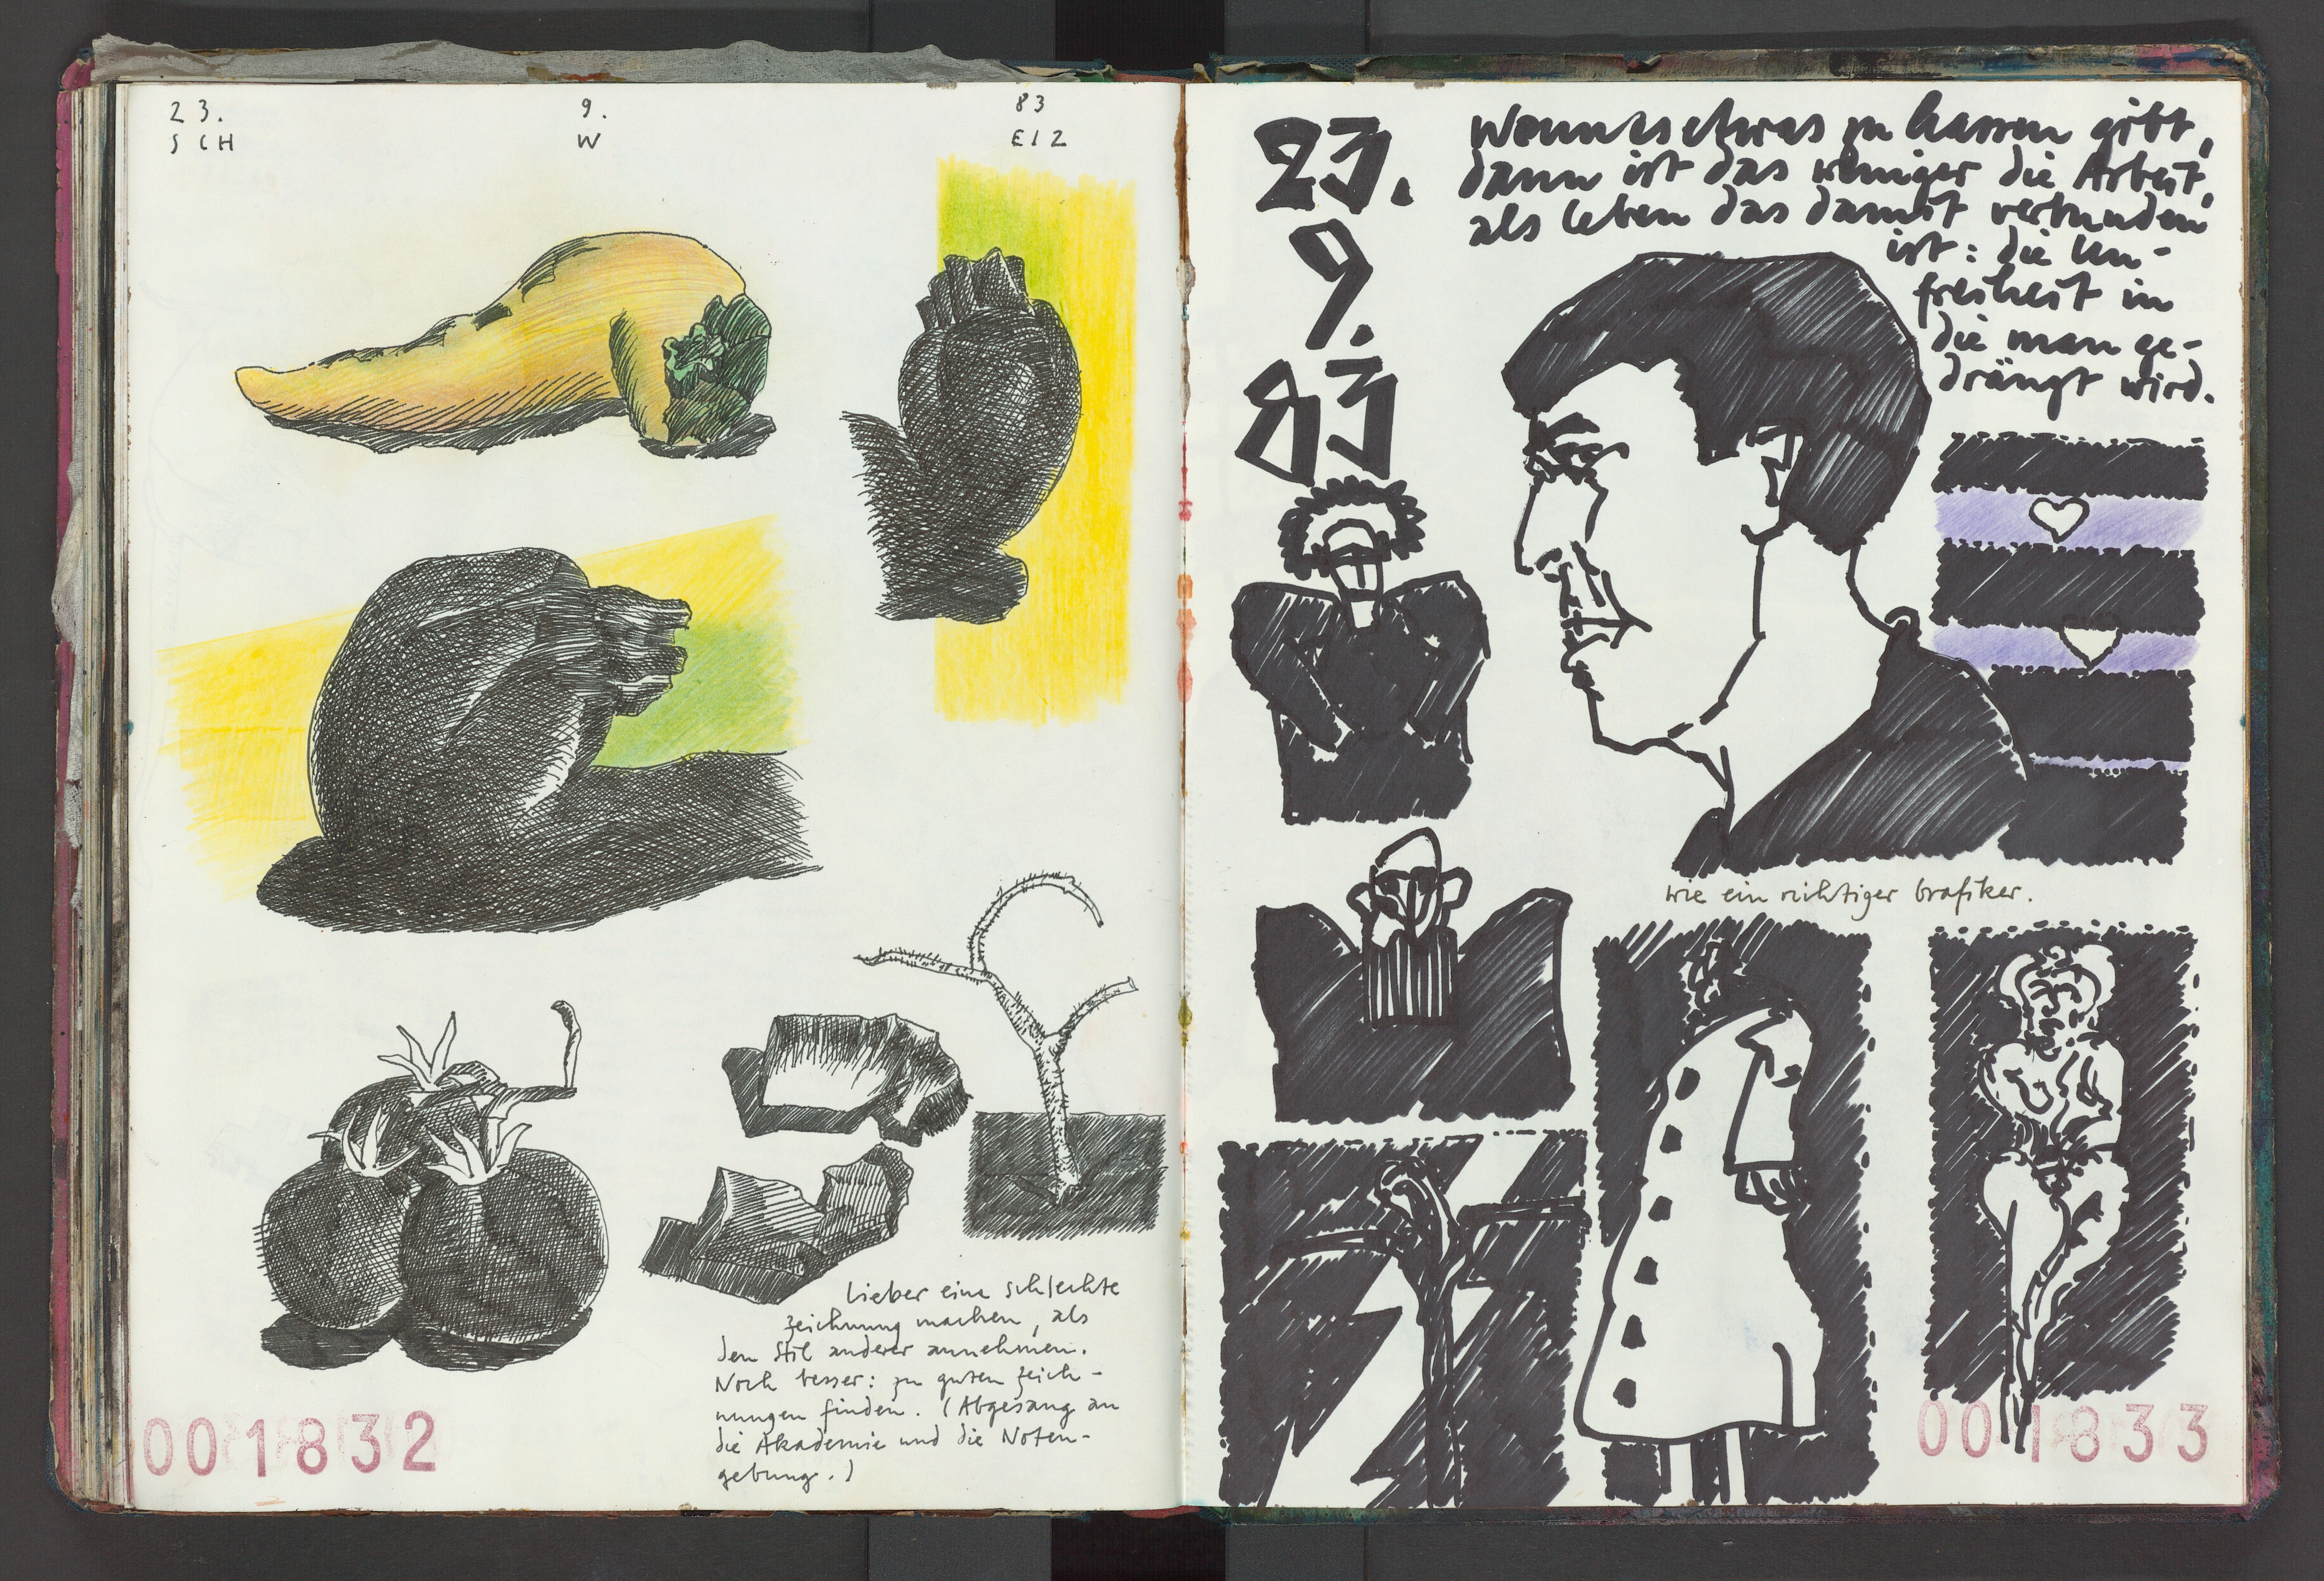 23. 9. 83
SCH W EIZ
Lieber eine schlechte
Zeichnung machen, als
den Stil anderer annehmen.
Noch besser: zu guten Zeich-
nungen finden. (Abgesang an
die Akademie und die Noten-
gebung.)
001832
23.
9.
83
Wenn es etwas zu hassen gibt,
dann ist das weniger die Arbeit,
als leben das damit verbunden
ist: die Un-
freiheit in
die man ge-
drängt wird.
wie ein richtiger Grafiker.
001833